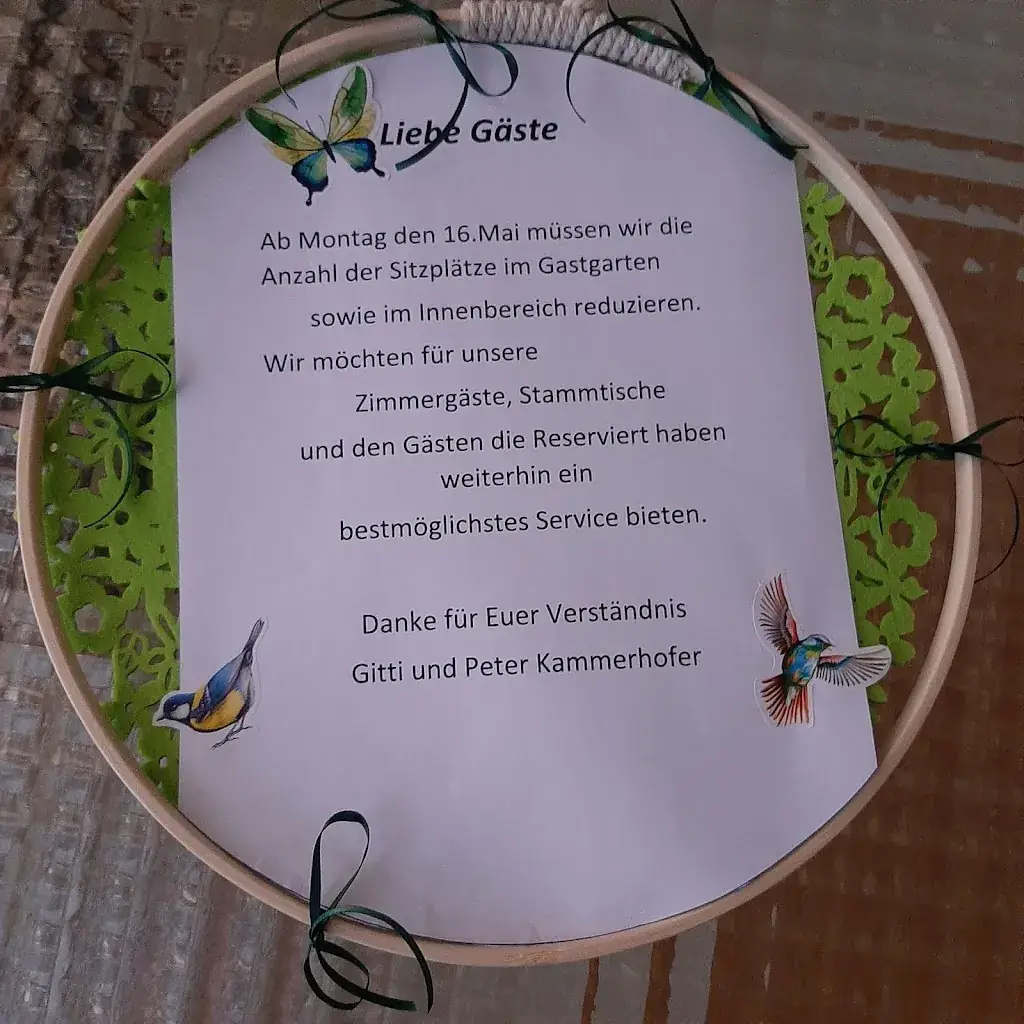 Liebe Gäste
Ab Montag den 16.Mai müssen wir die
Anzahl der Sitzplätze im Gastgarten
sowie im Innenbereich reduzieren.
Wir möchten für unsere
Zimmergäste, Stammtische
und den Gästen die Reserviert haben
weiterhin ein
bestmöglichstes Service bieten.
Danke für Euer Verständnis
Gitti und Peter Kammerhofer